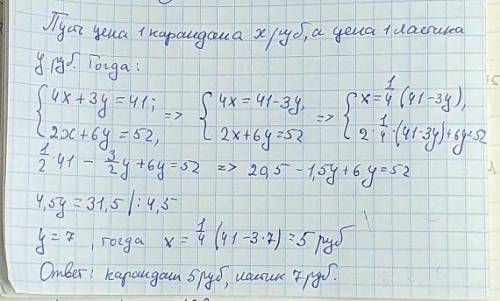 Пусть цена 1 карандаша x руб, а цена 1 ластика
y руб. Тогда:
{4x+3y=41; 2x+6y=52, => {4x=41-3y, 2x+6y=52 => {x=1/4(41-3y), 2·1/4·(41-3y)+6y=52
1/2·41 - 3/2y+6y=52 => 20,5-1,5y+6y=52
4,5y=31,5 |:4,5
y=7, тогда x=1/4(41-3·7)=5 руб
Ответ: карандаш 5 руб, ластик 7 руб.